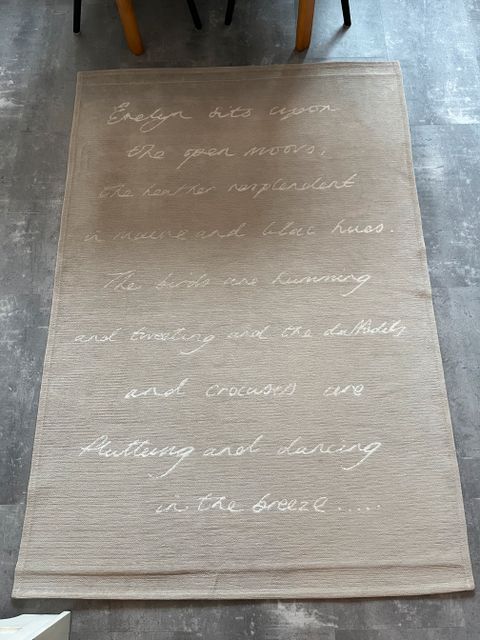 Evelyn sits upon
the open moors,
the heather resplendent
in mauve and lilac hues.
The birds are humming
and tweeting and the daffodils
and crocuses are
fluttering and dancing
in the breeze.....